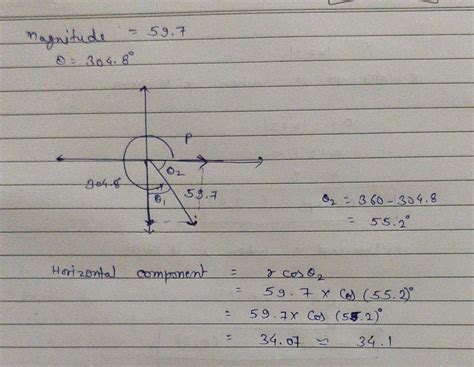 Magnitude = 59.7
θ = 304.8°
P
θ2
304.8
59.7
θ1
θ2 = 360 - 304.8
= 55.2°
Horizontal component = r cos θ2
= 59.7 x cos (55.2)°
= 59.7x cos (55.2)°
= 34.07 ≈ 34.1